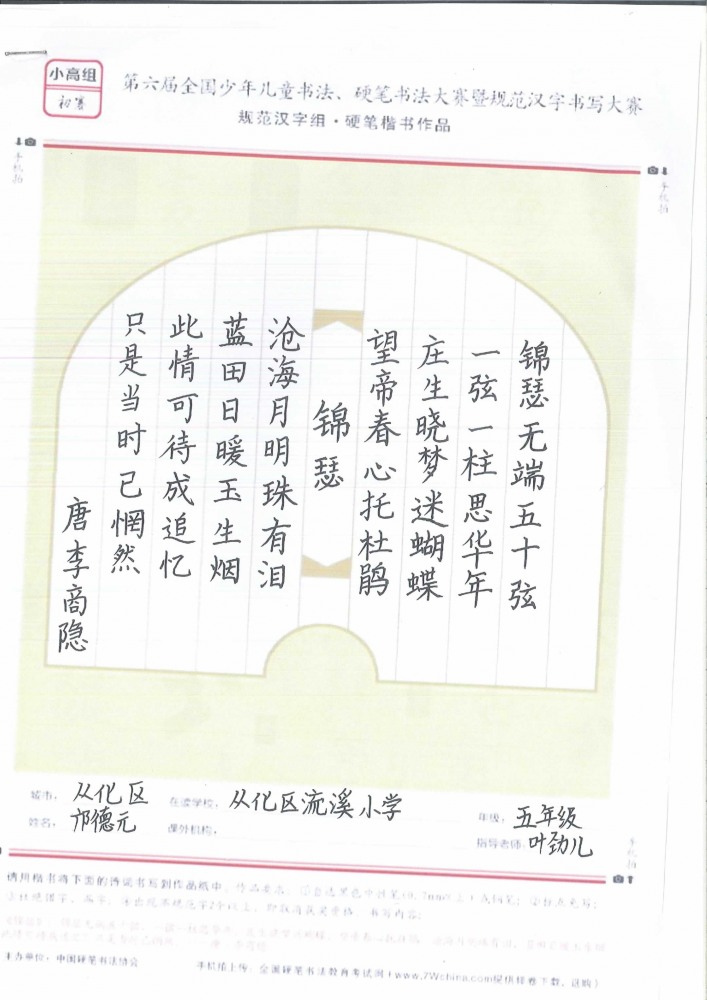 小高组
初赛
第六届全国少年儿童书法、硬笔书法大赛暨规范汉字书写大赛
规范汉字组·硬笔楷书作品
手机拍
手机拍
锦瑟无端五十弦
一弦一柱思华年
庄生晓梦迷蝴蝶
望帝春心托杜鹃
锦瑟
沧海月明珠有泪
蓝田日暖玉生烟
此情可待成追忆
只是当时已惘然
唐李商隐
城市：从化区
在读学校：从化区流溪小学
年级：五年级
姓名：邝德元
课外机构：
指导老师：叶劲儿
手机拍
请用楷书将下面的诗词书写到作品纸中。作品要求：
书写内容：
主办单位：中国硬笔书法协会
手机拍上传：全国硬笔书法教育考试网（www.7Wchina.com提供样卷下载、选购）